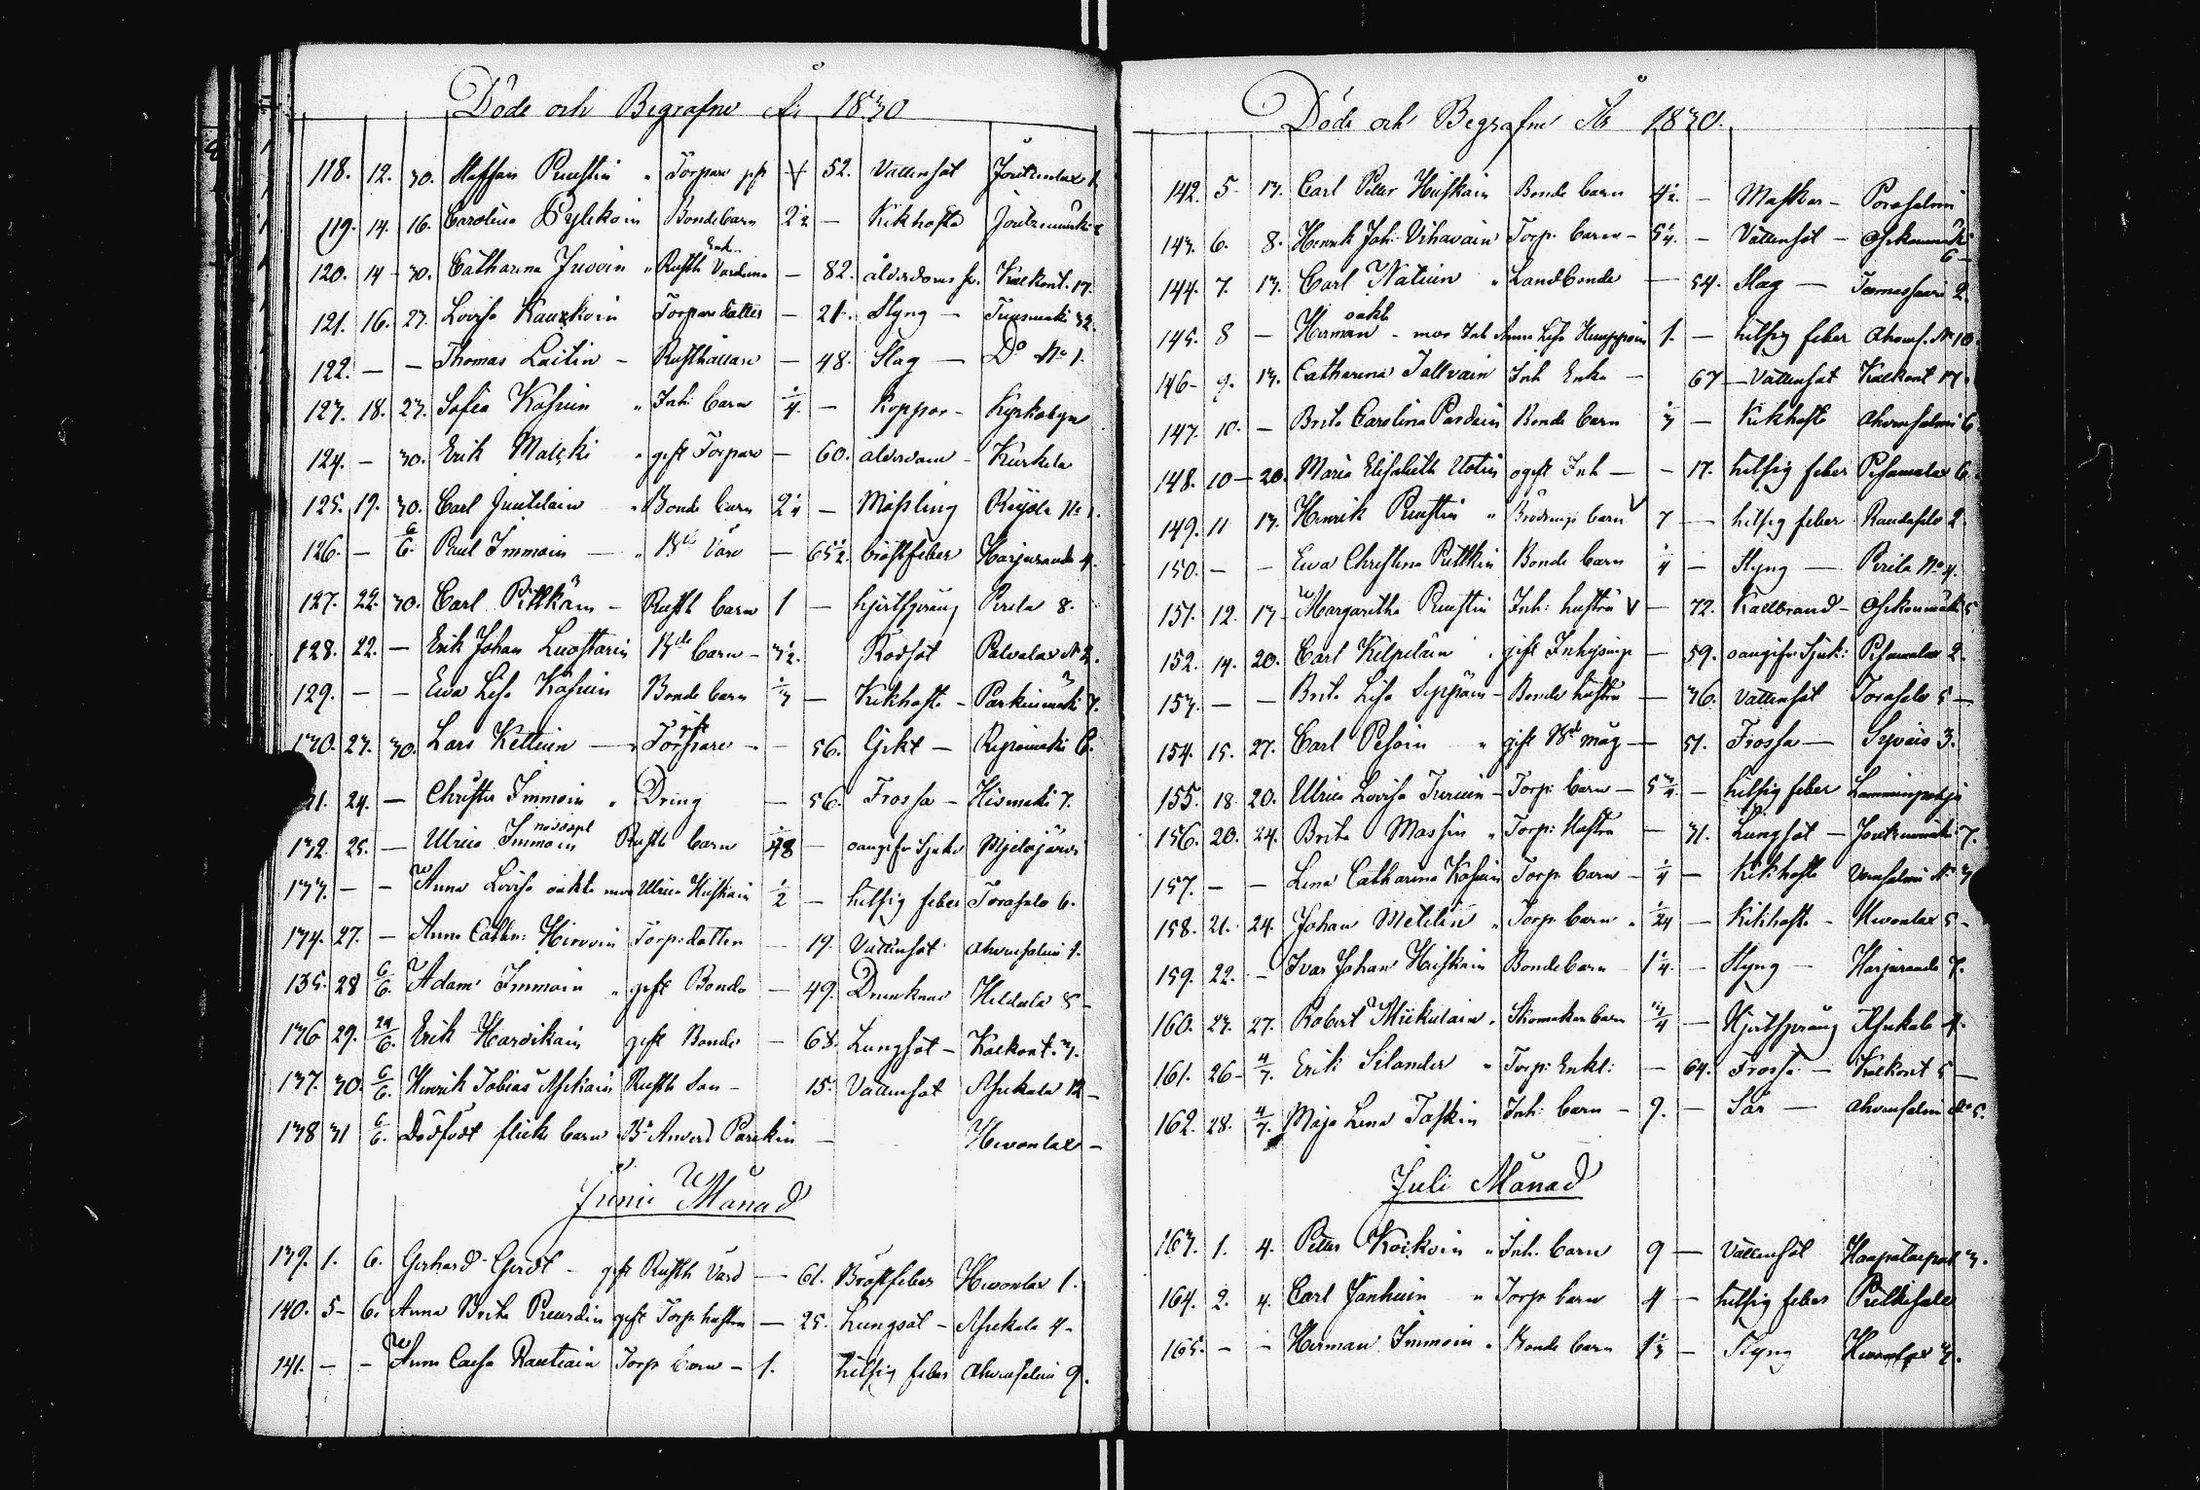 Döde och Begrafne År 1830
118. 12. 30. Staffan Punstin " Torpare gift 52. Vattensot Joutzenlax 1.
119. 14. 16. Carolina Kylikoin Bonde barn 2½ — Kikhosta
120. 14 — 30. Catharina Juvoin " Rusth. Värdinna Enk. — 82. ålderdoms Kalkont. 17.
121. 16. 23. Lovisa Torpare dotter — 21. Styng — 32.
122. — — Thomas Laitin — Rusthållare — 48. Slag — Do No 1.
123. 18. 23. Sofia Kåsuin " Inh: barn ¼ — Koppor — Kyrkobyn
124. — 30. Erik Matski " gift Torpare — 60. ålderdom — Kurkela
125. 19. 30. Carl Juutilain " Bonde barn 2¼ — Mässling
126. — 6/6. Paul Immoin — " — 65½. bröstfeber Harjuranda 4.
127. 22. 30. Carl Pittkäin — Rusth barn 1 — hjertsprång Pirila 8.
128. 22. — Erik Johan Luostarin barn — 3½. Rödsot Palvalax No 2.
129. — — Eva Lisa Kåsuin Bonde barn ⅓ — Kikhosta — Parkuinmäki 7.
130. 23. 30. Lars Kettuin — gift Torpare — — 56. Gikt — 6.
131. 24. — Christer Immoin " Dreng — 56. Frossa — 7.
132. 25. — Ulrica Immoin nöddöpt Rusth barn — oangifv. Sjukd
133. — — Anna Lovisa oäkta mor Ulrica Huiskain ½ — hitsig feber Torasalo 6.
134. 27. — Anna Cathr: Hirvoin Torp: dotter — 19. Vattensot Ahvensalmi 1.
135. 28 6/6. Adam Immoin " gift Bonde — 49. Drunknad 5 —
136 29. 24/6. Erik Harvikain gift Bonde — 68. Lungsot — Kalkont. 3.
137. 30. 6/6. Henrik Tobias Asikain Rusth Son — 15. Vattensot Asikala 12 —
138 31 6/6. Dödfödt flicke barn Parikin — Hevonlax —
Junii Månad
139. 1. 6. Gerhard Gerdt — gift Rusth Värd — 61. Bröstfeber Hevonlax 1.
140. 5 — 6. Anna Brita Puurdin gift Torp hustru — 25. Lungsot — Asikala 4 —
141. — — Anna Caisa Rautiain Torp barn — 1. hitsig feber Ahvensalmi 9.
Döde och Begrafne År 1830.
142. 5 — 13. Carl Petter Huiskain Bonde barn 4½. — Maskar — Porosalmi
143. 6. 8. Henrik Joh. Vihavain Torp. barn — 5¼. — Vattensot — 6 —
144. 7. 13. Carl Natuin " Landbonde — 54. Slag — 2.
145. 8 — Herman oäkt — mor Inh Anna Lisa Huuppoin 1. — hitsig feber Ahvens. No 10.
146 — 9. 13. Catharina Tallvain Inh Enka — 67 — Vattensot Kalkont 17.
147. 10. — Brita Carolina Pardain Bonde barn ⅓ — Kikhosta Ahvensalmi 6.
148. 10 — 20. Maria Elisabeth Utotin ogift Inh — — 17. hitsig feber 6.
149. 11 13. Henrik Punstin " barn 7 — hitsig feber Raudasalo 2.
150. — — Eva Christina Pittkin Bonde barn ¼ — Styng — Pirila No 4.
151. 12. 13 Margaretha Punstin Inh: hustru — 72. Kallbrand — 5
152. 14. 20. Carl Kilpiläin " gift Inhysing — 59. oangifv Sjuk: 2.
153. — — Brita Lisa Seppäin — Bonde hustru — 36. Vattensot Torasalo 5 —
154. 15. 27. Carl Pesoin " gift måg — 51. Frossa — Syväis 3.
155. 18. 20. Ulrica Lovisa Turuin — Torp: barn — 5¾. — hitsig feber Lamminpohja
156. 20. 24. Brita Massin " Torp: Hustru — 31. Lungsot — 7.
157. — — Lena Catharina Kåsuin Torp barn — ¼ — Kikhosta No 3
158. 21. 24. Johan Metelin " Torp barn " 1/24 — Kikhosta — Hevonlax 5 —
159. 22. — Ivar Johan Huiskain Bonde barn — 1¼. — Styng — Harjuranda 7.
160. 23. 27. Robert Miikulain " Skomakar barn ¾ — Hjertsprång Asikala 4.
161. 26 — 4/7. Erik Silander " Torp: Enkl: — 64. Frossa — Kalkont 5 —
162. 28. 4/7. Maja Lena Taskin Inh: barn — 9. — Sår — Ahvensalmi No 5.
Juli Månad
163. 1. 4. Petter Koikoin " Inh. barn 9 — Vattensot 3.
164. 2. 4. Carl Janhuin " Torp barn 4 — hitsig feber
165. — — Herman Immoin " Bonde barn 1⅓ — Styng Hevonlax 3.